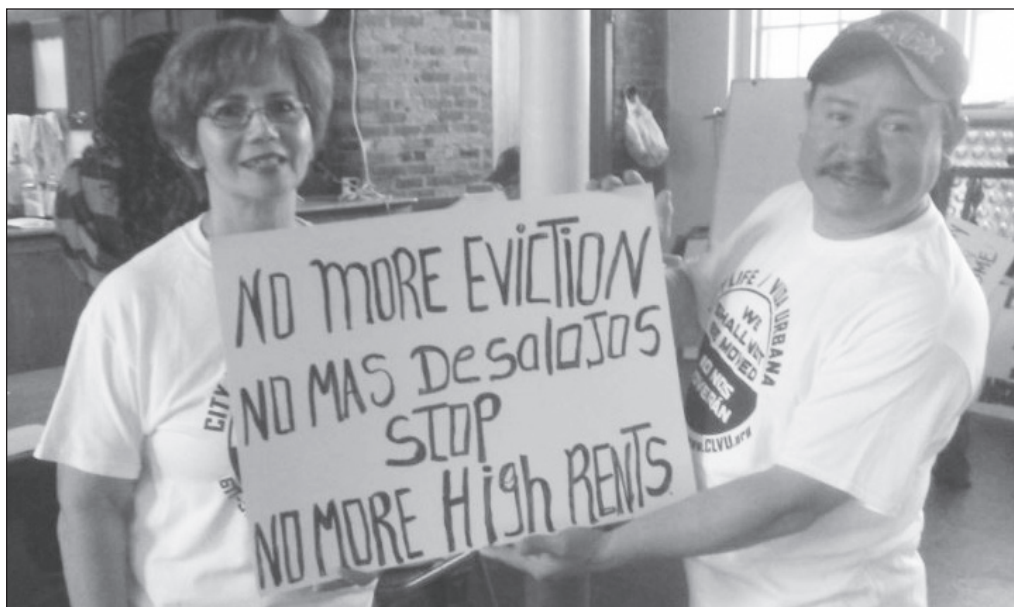 NO MORE EVICTION
NO MAS DesalOJOS
STOP
NO MORE High RENTS.
CITY
617-
LIFE / VIDA URBANA
WE
SHALL NOT
BE MOVED
NO NOS
MOVERÁN
WWW.CLVU.ORG